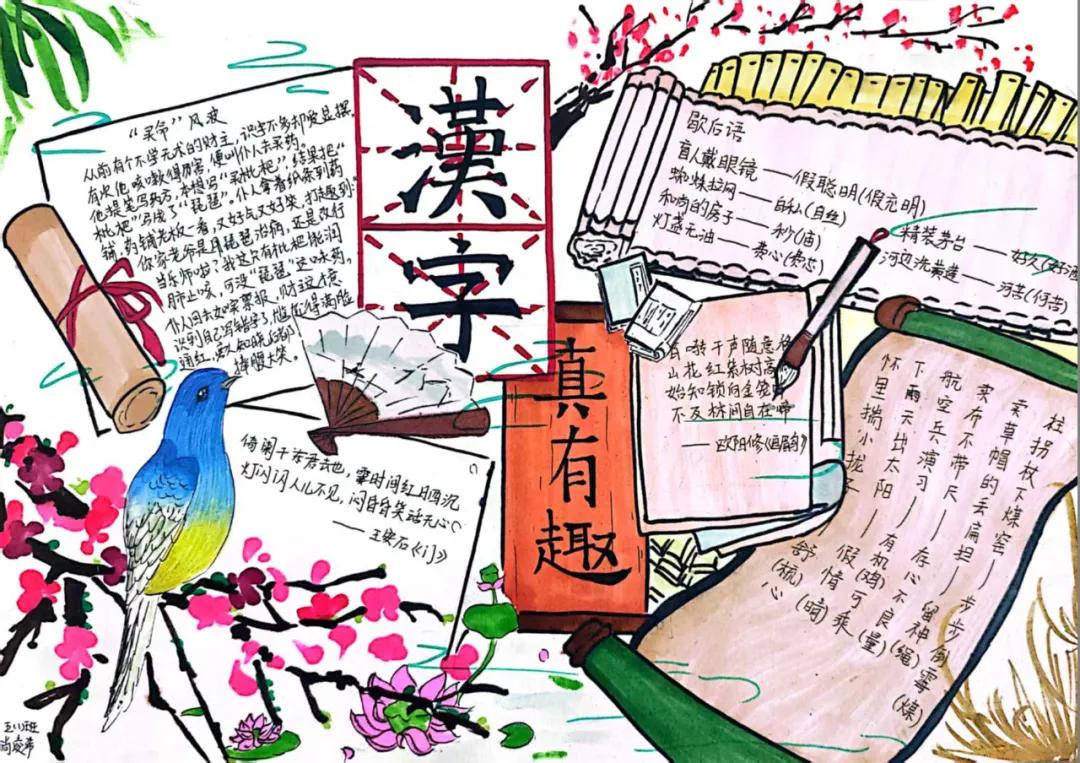 漢字
真有趣
“买命”风波
从前有个不学无术的财主，识字不多却爱显摆。
有次他咳嗽得厉害，便叫仆人去买药。
他提笔写药方，本想写“买枇杷”，结果把“
枇杷”写成了“琵琶”。仆人拿着纸条到药
铺，药铺老板一看，又好气又好笑，打趣到：“
你家老爷是用琵琶治病，还是改行
当乐师啦？我这只有枇杷能润
肺止咳，可没“琵琶”这味药。
仆人回去如实禀报，财主这才意
识到自己写错字了，尴尬得满脸
通红，众人知晓后都
捧腹大笑。
倚阑干茶君去也，霎时间红日西沉
灯闪闪人儿不见，闷昏昏笑话无心
——王安石《门》
歇后语
盲人戴眼镜——假聪明(假充明)
蜘蛛拉网——自私(自丝)
和尚的房子——妙(庙)
灯盏无油——费心(费芯)
精装茅台——好久(好酒
河边洗黄莲——河苦(何苦)
啭千声随意移
山花红紫树高
始知锁向金笼
不及林间自在啼
——欧阳修《画眉》
拄拐杖下煤窑——步步倒霉(煤)
卖草帽的丢扁担——留神(绳)
卖布不带尺——存心不良(量)
航空兵演习——有机(鸡)可乘
下雨天出太阳——假情(晴)
怀里揣小拢子——舒(梳)心
五(1)班
尚凌希